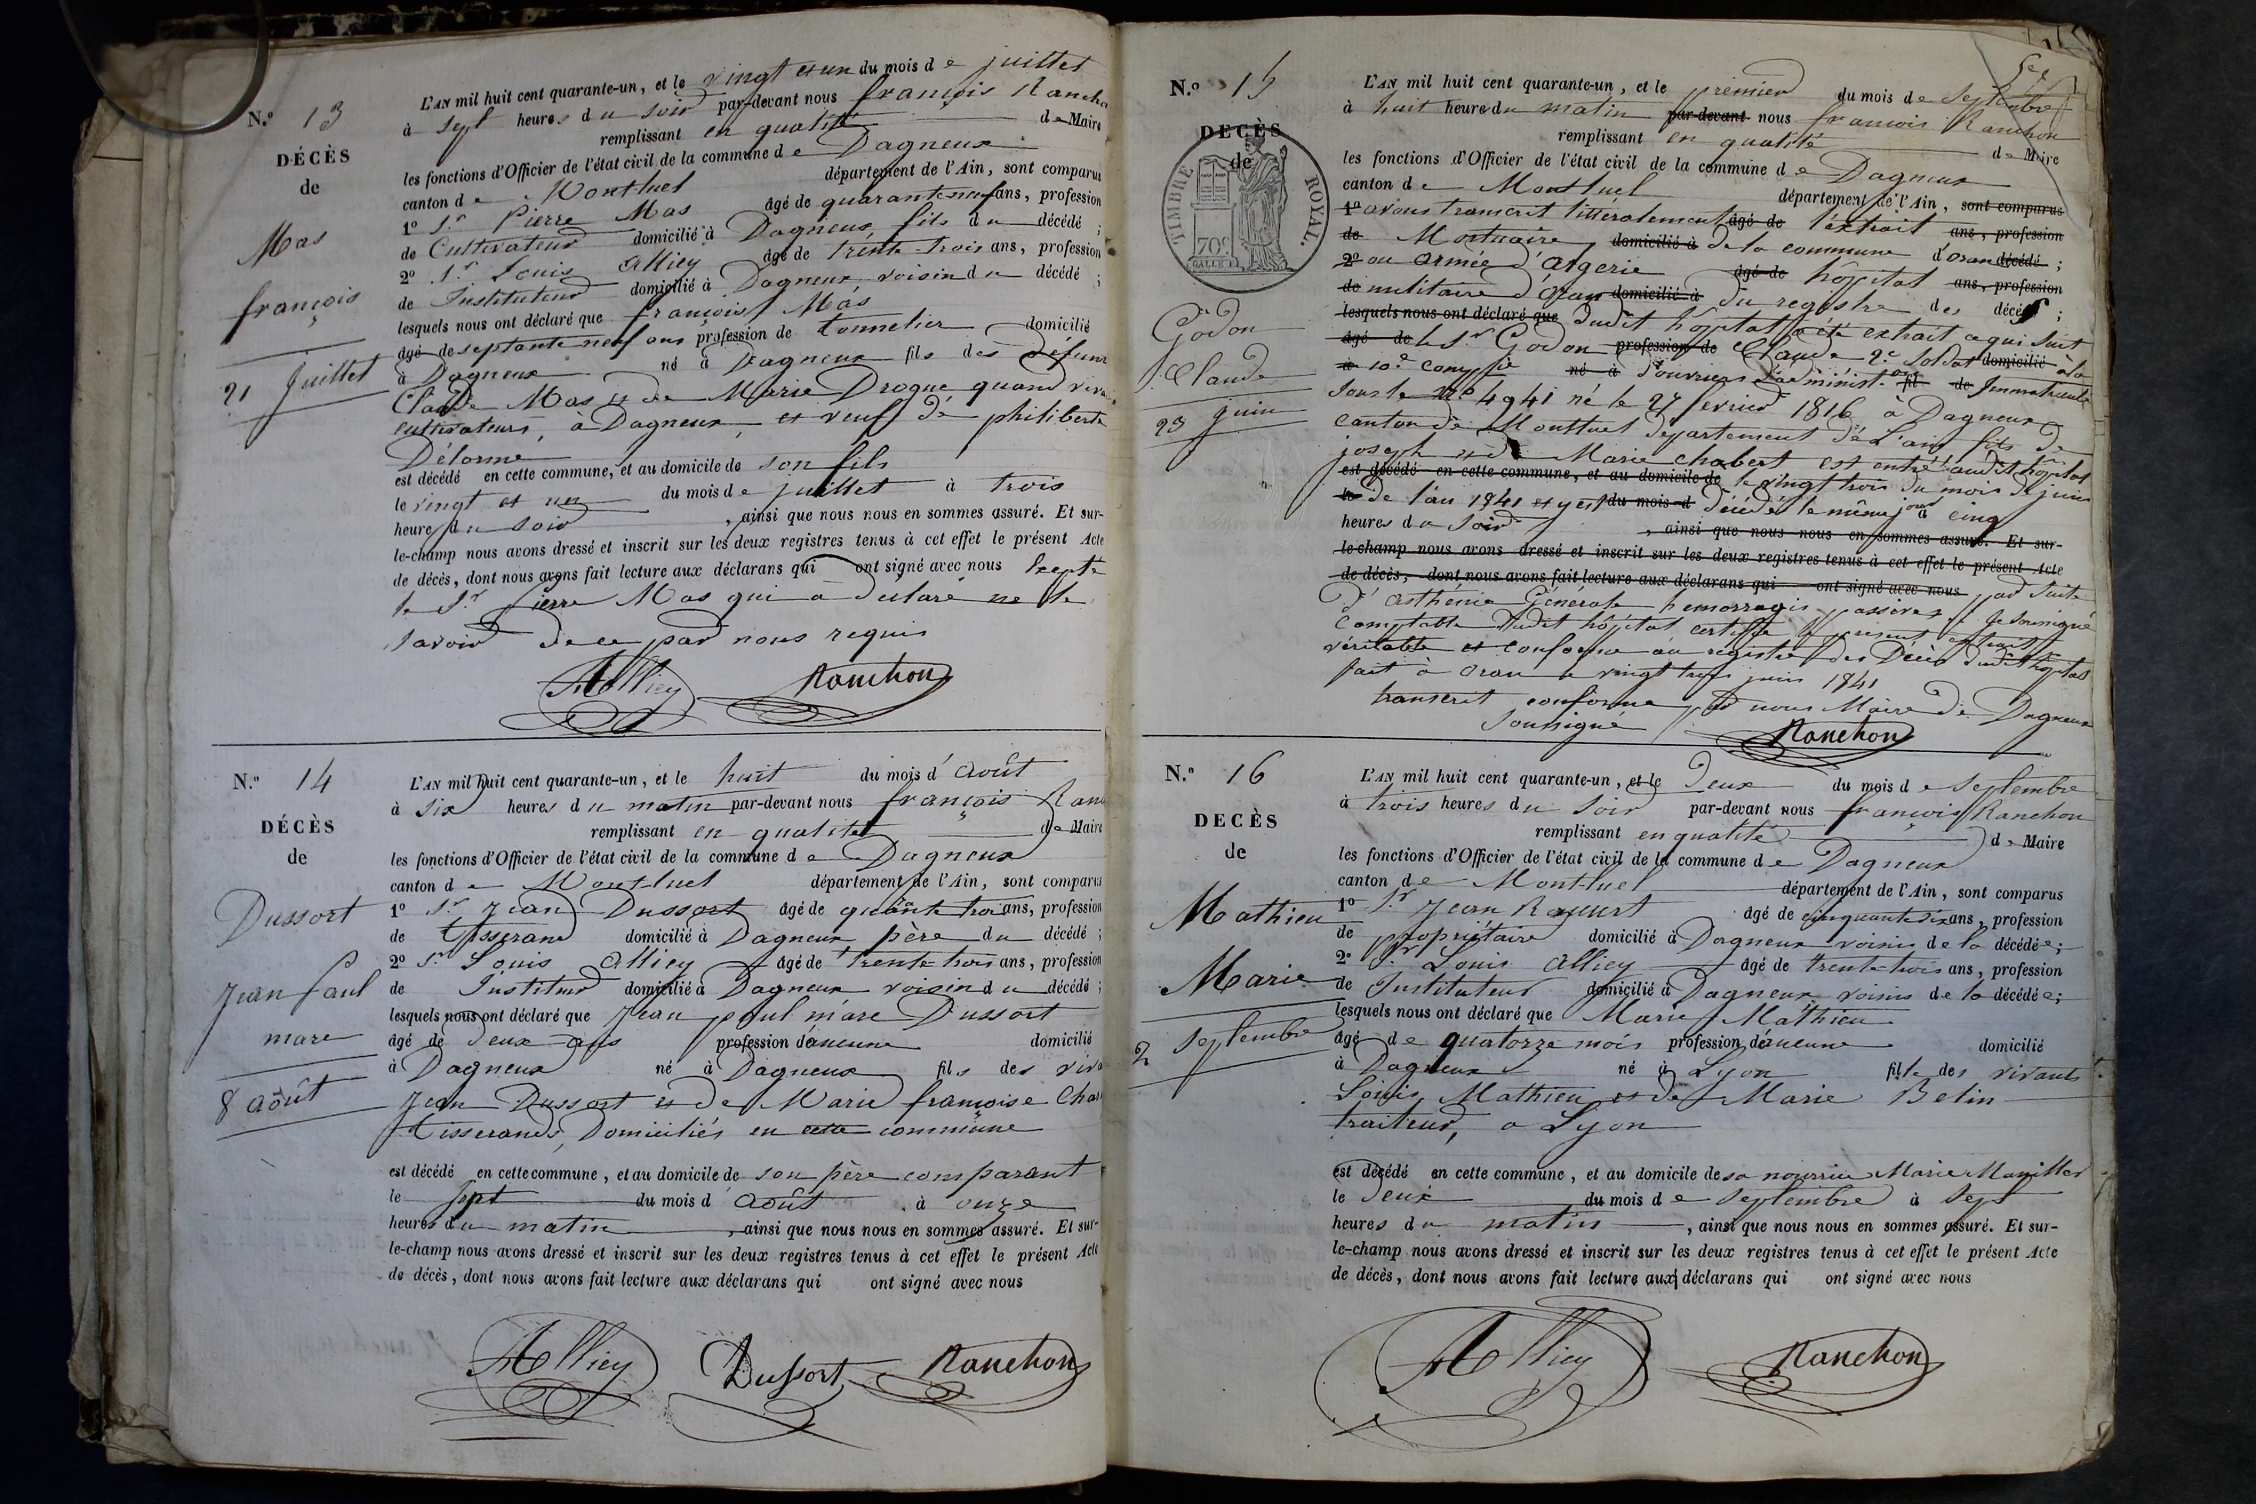 N.o 13
DÉCÈS
de
Mas
françois
21 Juillet
L'AN mil huit cent quarante-un, et le vingt et un du mois de juillet
à sept heures du soir par-devant nous françois Rancho
remplissant en qualité de Maire
les fonctions d'Officier de l'état civil de la commune de Dagneux
canton de Montluel département de l'Ain, sont comparus
1o Sr Pierre Mas âgé de quarante neuf ans, profession
de Cultivateur domicilié à Dagneux, fils du décédé ;
2o Sr Louis Alliey âgé de trente trois ans, profession
de Instituteur domicilié à Dagneux, voisin du décédé ;
lesquels nous ont déclaré que françois Mas
âgé de septante neuf ans profession de tonnelier domicilié
à Dagneux né à Dagneux fils des défunts
Claude Mas et de Marie Drogue quand viva
cultivateurs, à Dagneux, et veuf de philiberte
Délorme
est décédé en cette commune, et au domicile de son fils
le vingt et un du mois de juillet à trois
heures du soir, ainsi que nous nous en sommes assuré. Et sur-
le-champ nous avons dressé et inscrit sur les deux registres tenus à cet effet le présent Acte
de décès, dont nous avons fait lecture aux déclarans qui ont signé avec nous Excepté
le Sr Pierre Mas qui a déclaré ne le
savoir de ce par nous requis
Alliey Ranchon
N.o 14
DÉCÈS
de
Dussort
Jean Paul
marc
8 août
L'AN mil huit cent quarante-un, et le huit du mois d'août
à six heures du matin par-devant nous françois Ran
remplissant en qualité de Maire
les fonctions d'Officier de l'état civil de la commune de Dagneux
canton de Montluel département de l'Ain, sont comparus
1o Sr Jean Dussort âgé de quarante trois ans, profession
de tisserand domicilié à Dagneux, père du décédé ;
2o Sr Louis Alliey âgé de trente trois ans, profession
de Institueur domicilié à Dagneux voisin du décédé ;
lesquels nous ont déclaré que Jean paul marc Dussort
âgé de deux ans profession d'aucune domicilié
à Dagneux né à Dagneux fils des viva
Jean Dussort et de Marie françoise Cha
tisserands, Domiciliés en cette commune
est décédé en cette commune, et au domicile de son père comparant
le sept du mois d'août à onze
heures du matin, ainsi que nous nous en sommes assuré. Et sur-
le-champ nous avons dressé et inscrit sur les deux registres tenus à cet effet le présent Acte
de décès, dont nous avons fait lecture aux déclarans qui ont signé avec nous
Alliey Dussort Ranchon
N.o 15
DECÈS
de
TIMBRE ROYAL.
70c
Godon
Claude
23 juin
L'AN mil huit cent quarante-un, et le premier du mois de septembre
à huit heures du matin par-devant nous francois Ranchon
remplissant en qualité de Maire
les fonctions d'Officier de l'état civil de la commune de Dagneux
canton de Montluel département de l'Ain, sont comparus
1o avons transcrit littéralement âgé de l'extrait ans, profession
de Mortuaire, domicilié à de la commune d'oran décédé ;
2o ou armée d'algerie âgé de hôpital ans, profession
de militaire d'oran domicilié à du registre des décès ;
lesquels nous ont déclaré que dudit hôpital a été extrait ce qui suit
âgé de le Sr Godon profession de Claude 2e soldat domicilié à la
à 10e compgie né à d'ouvriers d'administ.on fil de Immatriculé
sous le no 4941 né le 27 fevrier 1816 à Dagneux
canton de Montluel département de L'ain fils de
joseph et de Marie chabert est entré audit hôpital
est décédé en cette commune, et au domicile de le vingt trois du mois de juin
le de l'an 1841 et y est du mois d décédé le même jour à cinq
heures du soir, ainsi que nous nous en sommes assuré. Et sur-
le-champ nous avons dressé et inscrit sur les deux registres tenus à cet effet le présent Acte
de décès, dont nous avons fait lecture aux déclarans qui ont signé avec nous par suite
d'asthénie Générale hemorragies passives, le soussigné
comptable dudit hôpital certifie le présent extrait
véritable et conforme au registre des Décès dudit hôpital
fait à oran le vingt trois juin 1841
transcrit conforme par nous Maire de Dagneux
soussigné Ranchon
N.o 16
DECÈS
de
Mathieu
Marie
2 septembre
L'AN mil huit cent quarante-un, et le deux du mois de septembre
à trois heures du soir par-devant nous françois Ranchon
remplissant en qualité de Maire
les fonctions d'Officier de l'état civil de la commune de Dagneux
canton de Montluel département de l'Ain, sont comparus
1o Sr Jean âgé de cinquante six ans, profession
de propriétaire domicilié à Dagneux voisin de la décédée ;
2o Sr Louis Alliey âgé de trente-trois ans, profession
de Instituteur domicilié à Dagneux voisin de la décédée ;
lesquels nous ont déclaré que Marie Mathieu
âgé de quatorze mois profession d'aucune domicilié
à Dagneux né à Lyon fille des vivants
Louis Mathieu et de Marie Belin
traiteur, a Lyon
est décédé en cette commune, et au domicile de sa nourrice Marie
le deux du mois de septembre à sept
heures du matin, ainsi que nous nous en sommes assuré. Et sur-
le-champ nous avons dressé et inscrit sur les deux registres tenus à cet effet le présent Acte
de décès, dont nous avons fait lecture aux déclarans qui ont signé avec nous
Alliey Ranchon